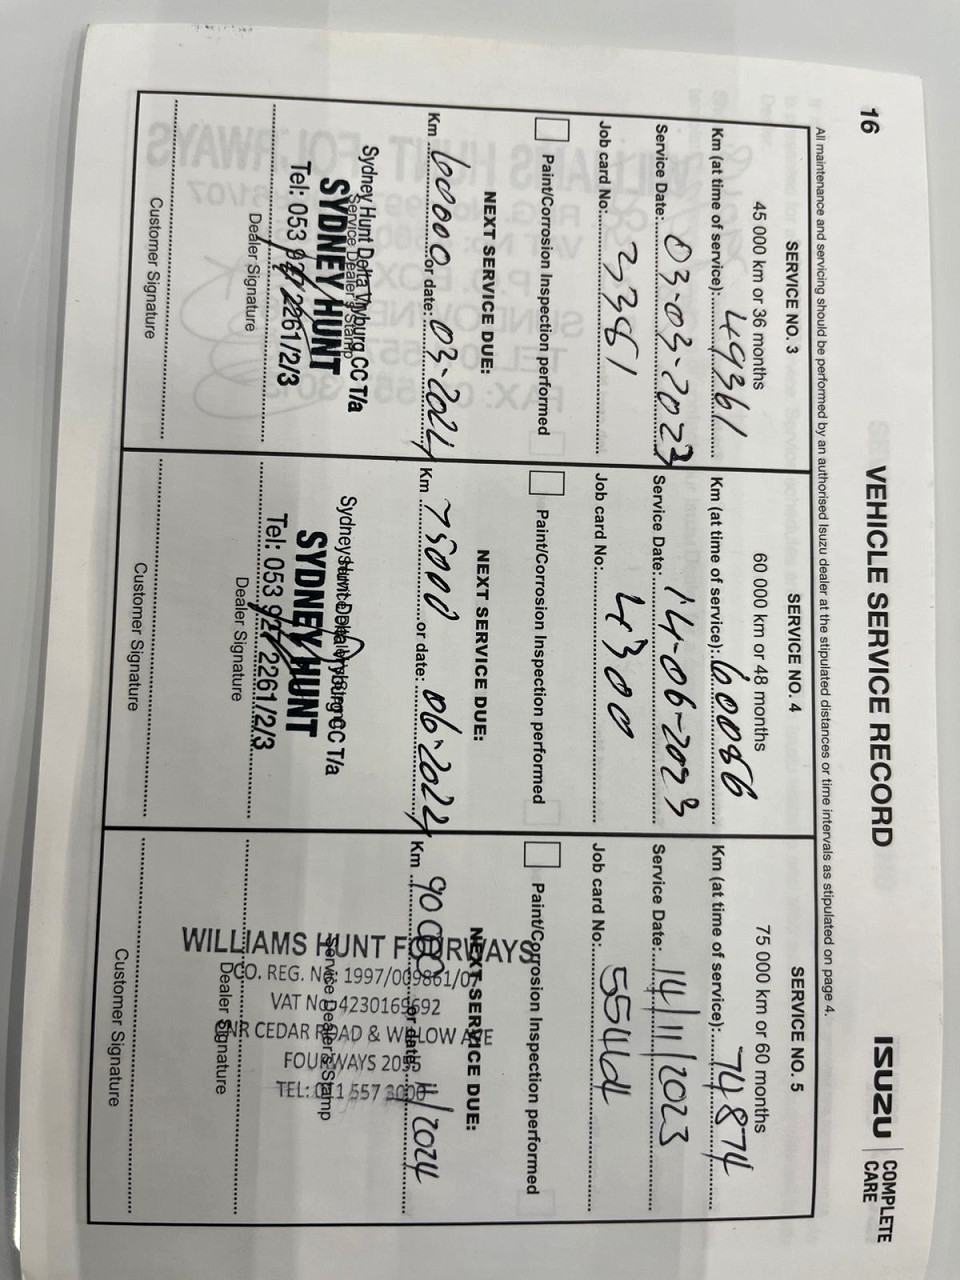 16
VEHICLE SERVICE RECORD
ISUZU
COMPLETE
CARE
All maintenance and servicing should be performed by an authorised Isuzu dealer at the stipulated distances or time intervals as stipulated on page 4.
SERVICE NO. 3
45 000 km or 36 months
Km (at time of service): 49361
Service Date: 03-03-2023
Job card No: 3381
Paint/Corrosion Inspection performed
NEXT SERVICE DUE:
Km 60000 or date: 03-2024
Sydney Hunt Delta Vryburg CC T/a
Service Dealer's Stamp
SYDNEY HUNT
Tel: 053 927 2261/2/3
Dealer Signature
Customer Signature
SERVICE NO. 4
60 000 km or 48 months
Km (at time of service): 60086
Service Date: 14-06-2023
Job card No: 4300
Paint/Corrosion Inspection performed
NEXT SERVICE DUE:
Km 75000 or date: 06-2024
Sydney Hunt Delta Vryburg CC T/a
Service Dealer's Stamp
SYDNEY HUNT
Tel: 053 927 2261/2/3
Dealer Signature
Customer Signature
SERVICE NO. 5
75 000 km or 60 months
Km (at time of service): 74874
Service Date: 14/11/2023
Job card No: 55464
Paint/Corrosion Inspection performed
NEXT SERVICE DUE:
Km 90000 or date: 11/2024
Service Dealer's Stamp
WILLIAMS HUNT FOURWAYS
CO. REG. No: 1997/009861/07
VAT No 4230169692
CNR CEDAR ROAD & WILLOW AVE
FOURWAYS 2055
TEL: 011 557 3000
Dealer Signature
Customer Signature